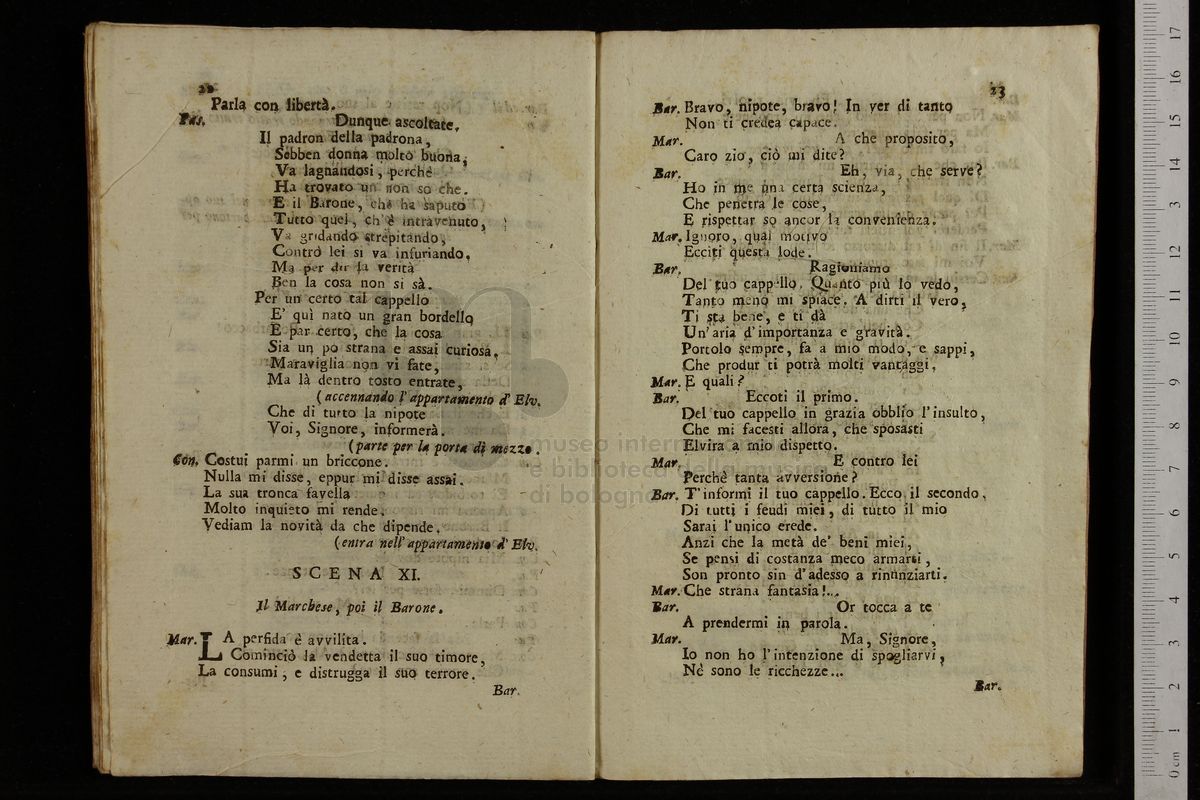 22
Parla con libertà.
Pas. Dunque ascoltate.
Il padron della padrona,
Sebben donna molto buona,
Va lagnandosi, perchè
Ha trovato un non so che.
E il Barone, che ha saputo
Tutto quel, ch'è intravenuto,
Va gridando strepitando,
Contro lei si va infuriando,
Ma per dir la verità
Ben la cosa non si sà.
Per un certo tal cappello
E' quì nato un gran bordello
E par certo, che la cosa
Sia un po strana e assai curiosa,
Maraviglia non vi fate,
Ma là dentro tosto entrate,
(accennando l'appartamento d'Elv.
Che di tutto la nipote
Voi, Signore, informerà.
(parte per la porta di mezzo.
Con. Costui parmi un briccone.
Nulla mi disse, eppur mi disse assai.
La sua tronca favella
Molto inquieto mi rende.
Vediam la novità da che dipende.
(entra nell'appartamento d'Elv.
SCENA XI.
Il Marchese, poi il Barone.
Mar. LA perfida è avvilita.
Cominciò la vendetta il suo timore,
La consumi, e distrugga il suo terrore.
Bar.
23
Bar. Bravo, nipote, bravo! In ver di tanto
Non ti credea capace.
Mar. A che proposito,
Caro zio, ciò mi dite?
Bar. Eh, via, che serve?
Ho in me una certa scienza,
Che penetra le cose,
E rispettar so ancor la convenienza.
Mar. Ignoro, qual motivo
Ecciti questa lode.
Bar. Ragioniamo
Del tuo cappello. Quanto più lo vedo,
Tanto meno mi spiace. A dirti il vero,
Ti sta bene, e ti dà
Un'aria d'importanza e gravità.
Portolo sempre, fa a mio modo, e sappi,
Che produr ti potrà molti vantaggi,
Mar. E quali?
Bar. Eccoti il primo.
Del tuo cappello in grazia obblio l'insulto,
Che mi facesti allora, che sposasti
Elvira a mio dispetto.
Mar. E contro lei
Perchè tanta avversione?
Bar. T'informi il tuo cappello. Ecco il secondo.
Di tutti i feudi miei, di tutto il mio
Sarai l'unico erede.
Anzi che la metà de' beni miei,
Se pensi di costanza meco armarti,
Son pronto sin d'adesso a rinunziarti.
Mar. Che strana fantasia!...
Bar. Or tocca a te
A prendermi in parola.
Mar. Ma, Signore,
Io non ho l'intenzione di spogliarvi,
Nè sono le ricchezze...
Bar.
museo internazionale
e biblioteca della musica
di bologna
0 cm 1 2 3 4 5 6 7 8 9 10 11 12 13 14 15 16 17